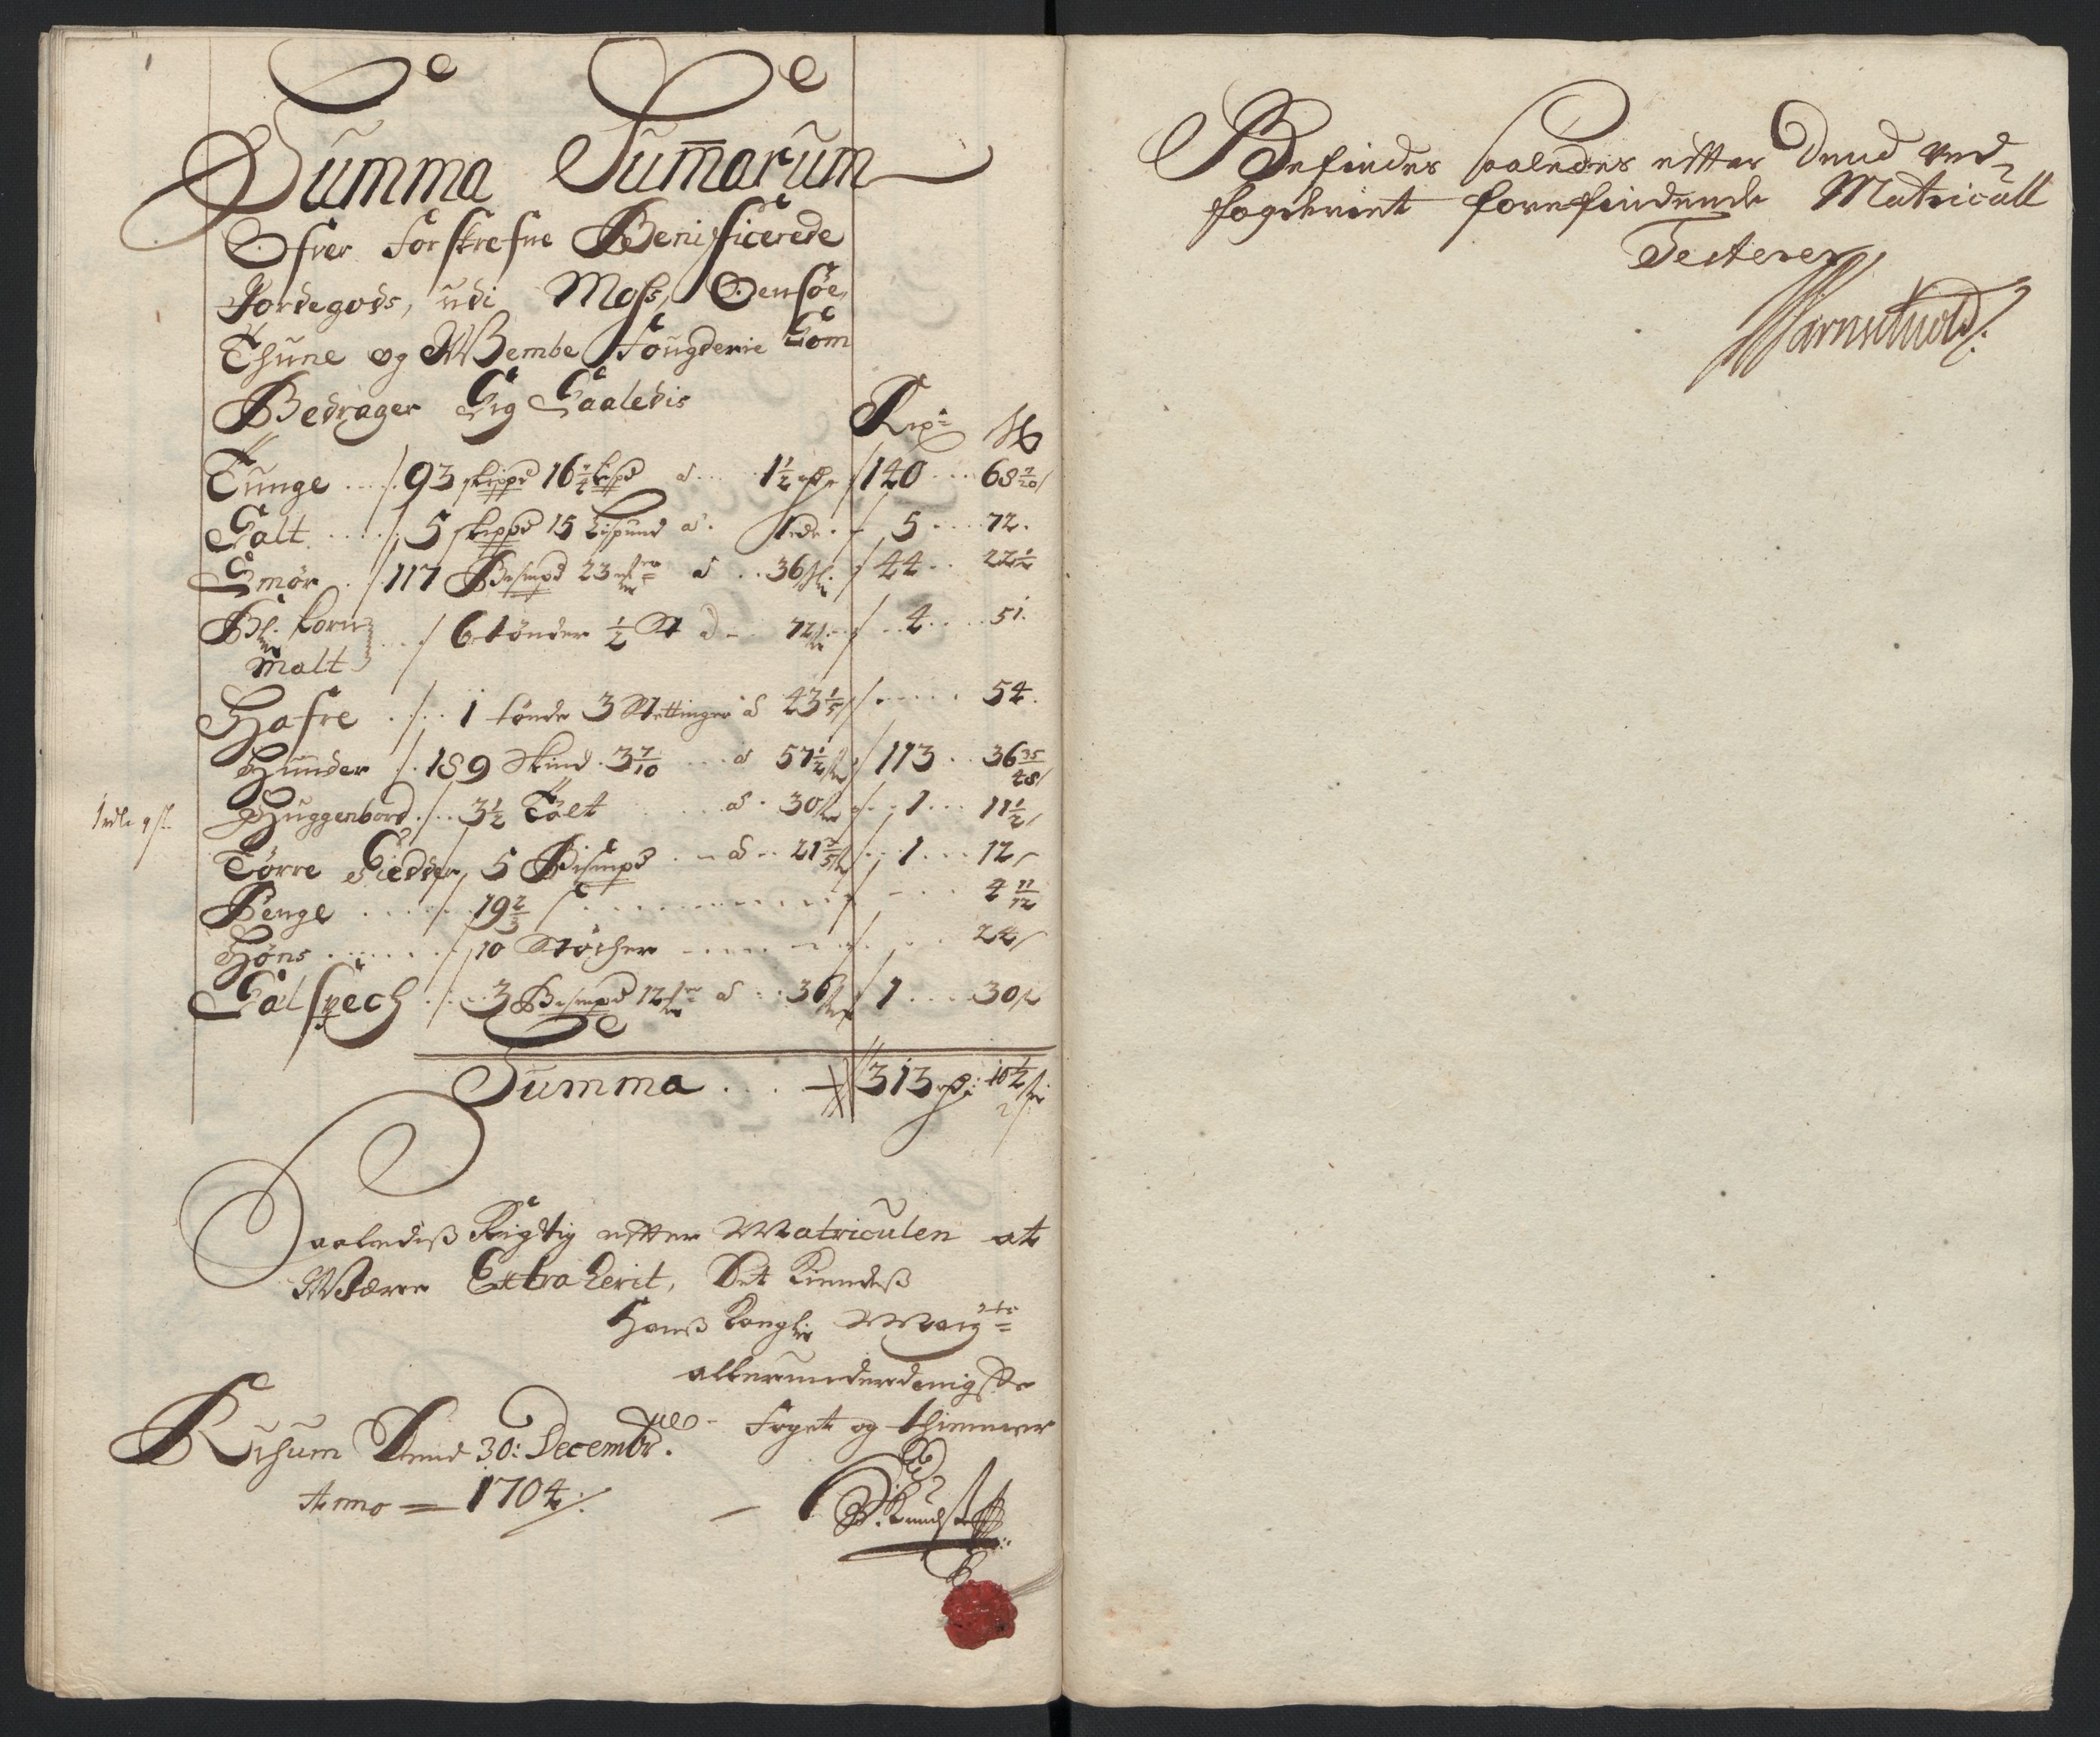 Summa Summarum
Ofver Forskrefne Benificerede
Jordegods, udi Moss, Oensøe,
Thune og Wembe Fougderie Som
Bedrager Sig Saaledis
Rdr: ß
Tunge . . . 93 skippd 16 1/4 lispd a . . 1 1/2 rdr 140 . . . 68 7/20
Salt . . . . 5 skippd 15 Lispund a . 1 rdr . 5 . . . 72 .
Smør . 117 Bismpd 23 mr a . . 36 ß 44 . . 22 1/2
Bl: korn
Malt . . . 6 tønder 1/2 St a - 72 ß . . 4 . . . 51 .
Hafre . . . 1 tønde 3 Settinger a 43 1/5 . . . . . 54 .
Huuder . 189 Skind . 3 7/10 . . . a 57 1/2 ß 113 . . 36 35/48
1 rdr 9 ß
Huggenbord . . . 3 1/2 Tølt a . 30 ß . . 1 . . . 11 1/2
Tørre Giedder, 5 Bismpd . . a . . 21 3/5 ß . . 1 . . . 12
Penge . . . . . 19 2/3 . . . . . . . . . . - . . . 4 11/12
Høns . . . . . . 10 Støcher . . . . . . . . 24
Galt Spech . . . 3 Bismpd 12 mr a . . 36 ß 1 . . . 30 ß
Summa . . . . 313 rdr: 10 1/2 ß
Saalediß Rigtig efter Matriculen at
Wære Extraherit, Det Kiendeß
Hanß Kongl: Mayts
allerunderdanigste
Foget og thienner
Kihum Dend 30: Decembr.
Anno = 1704
Befindes saaledes efter dend ved
fogderiet forefindende Matricull
Testerer